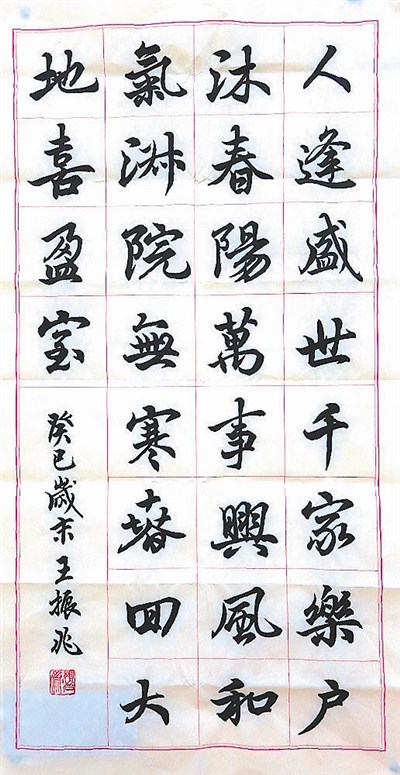 人逢盛世千家樂户
沐春陽萬事興風和
氣淑院無寒回大
地喜盈室
癸巳歲末王振兆